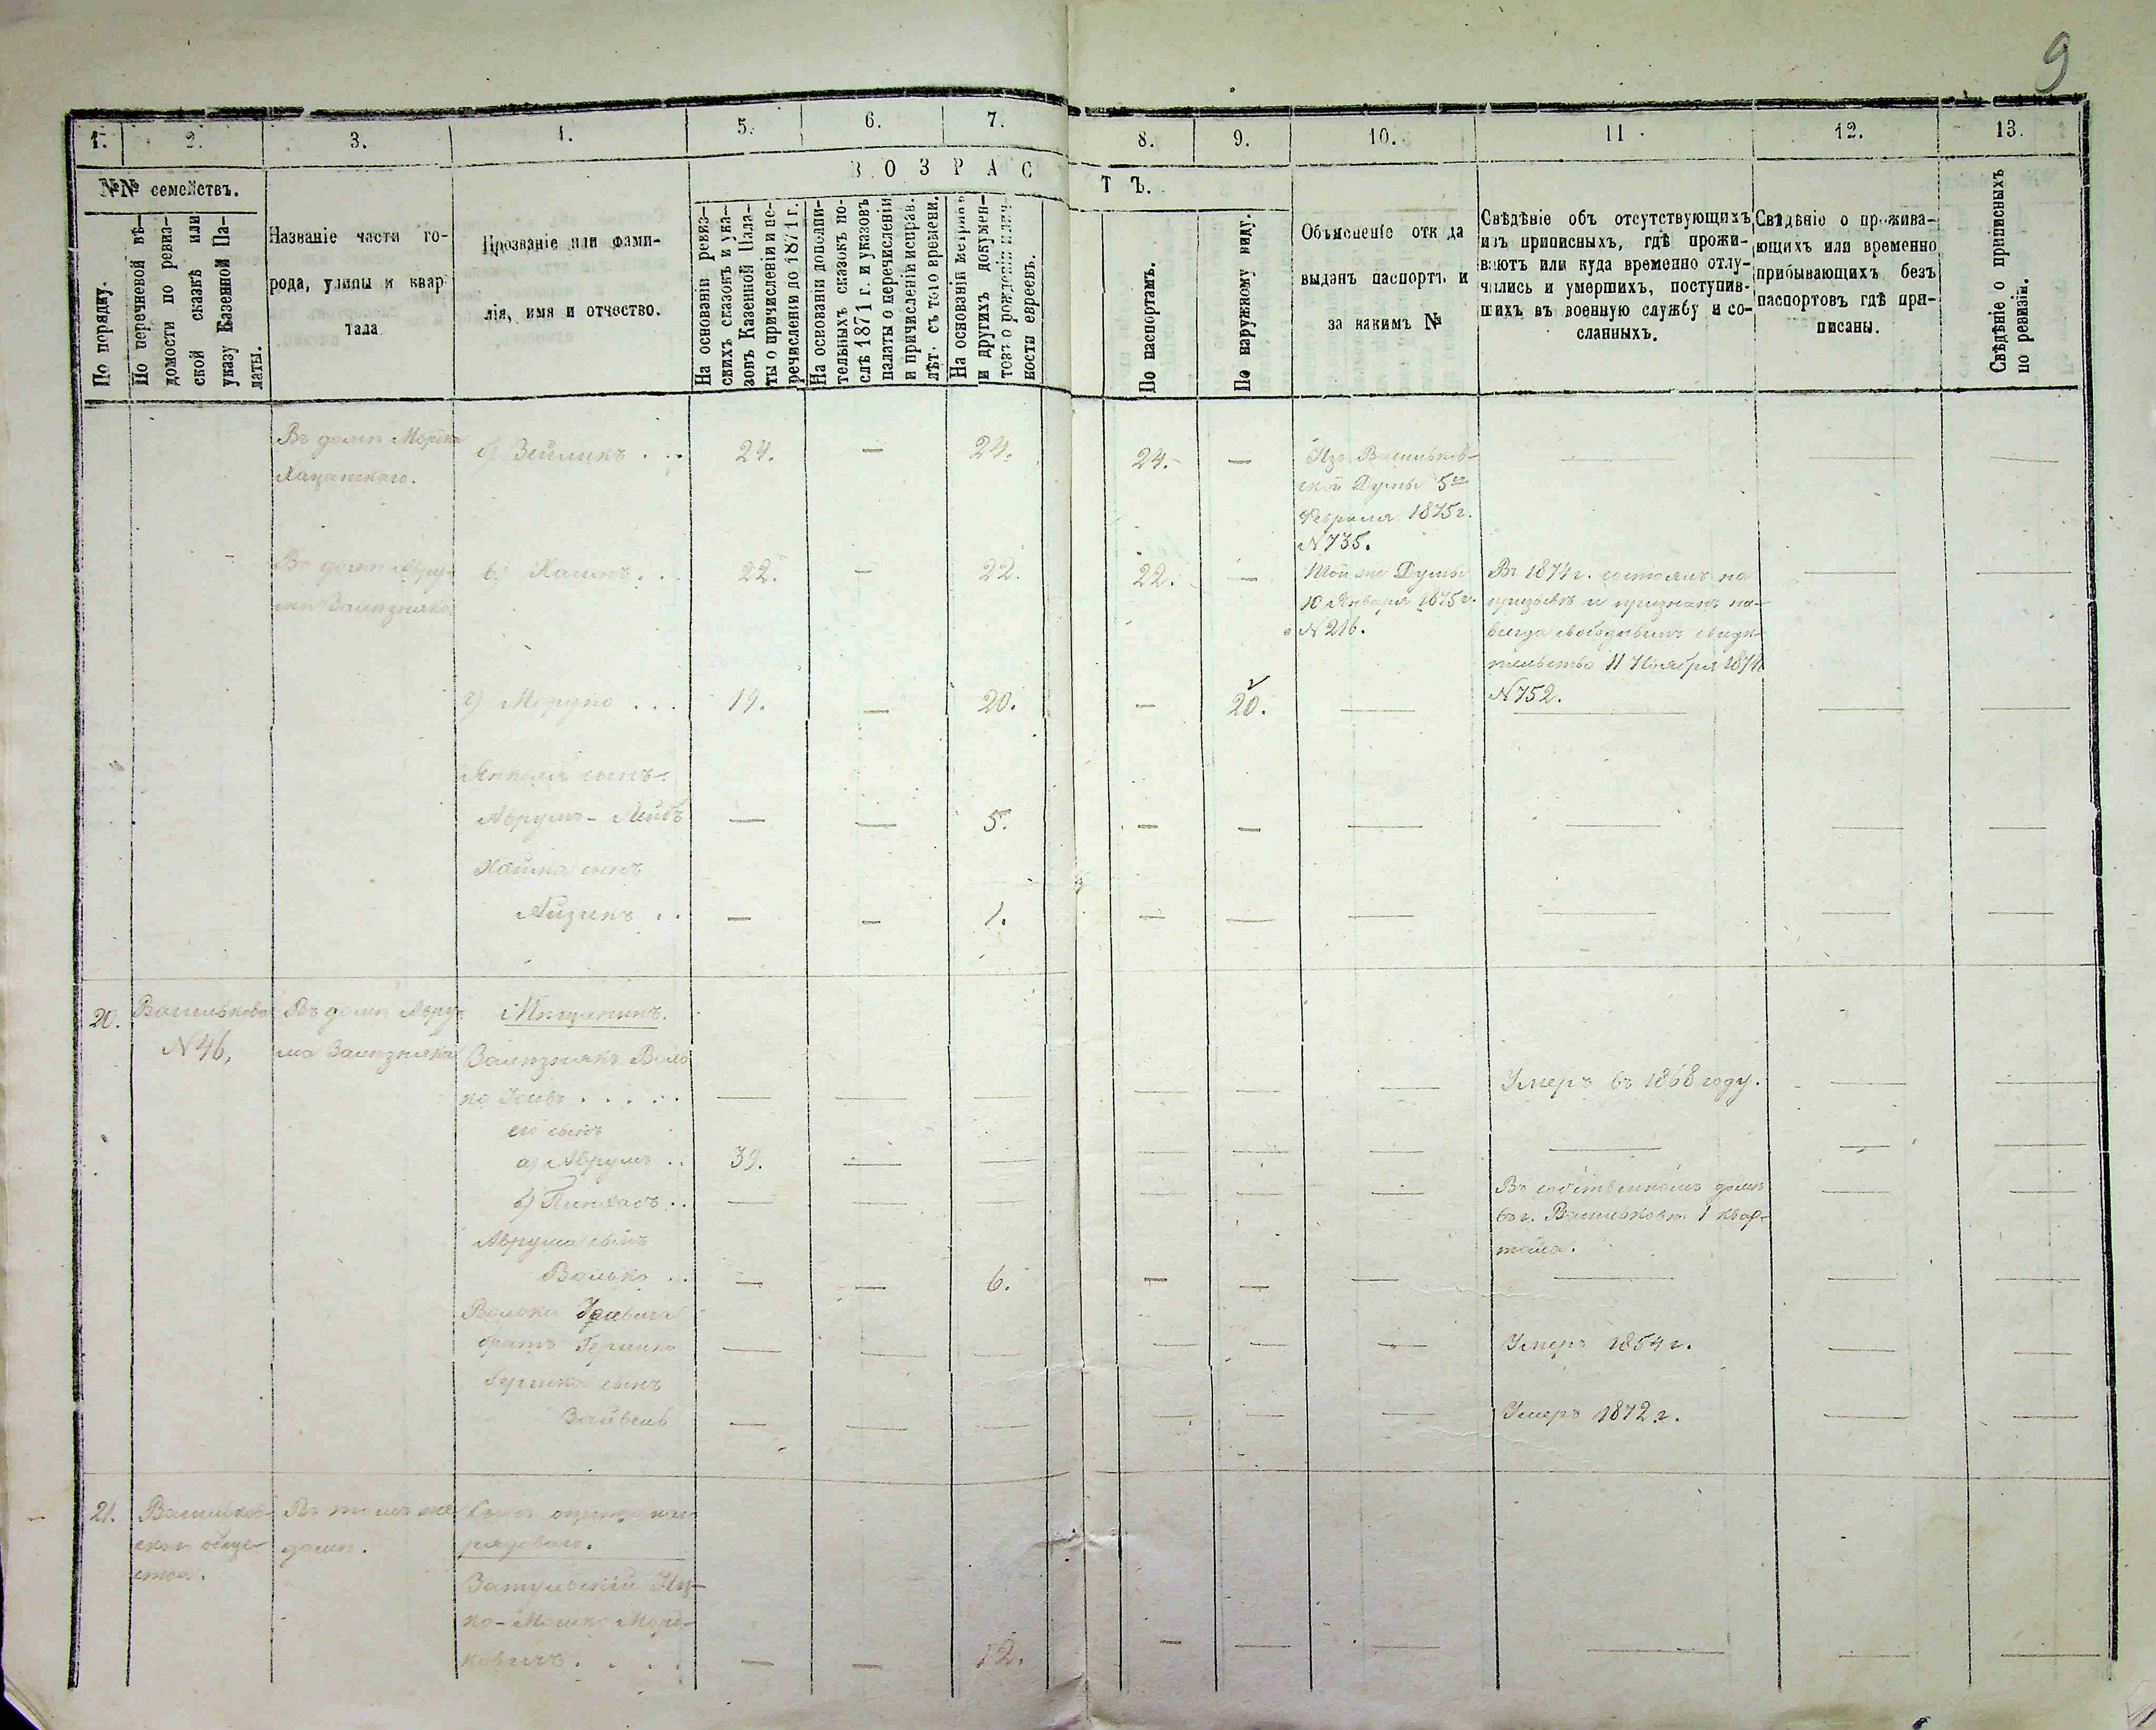 9
1. 2. 3. 4. 5. 6. 7. 8. 9. 10. 11 12. 13.
№№ семействъ.
По порядку.
По перечневой вѣ-
домости по ревиз-
ской сказкѣ или
указу Казенной Па-
латы.
Названіе части го-
рода, улицы и квар
тала
Прозваніе или фами-
лія, имя и отчество.
ВОЗРАС
ТЪ.
На основаніи ревиз-
скихъ сказокъ и ука-
зовъ Казенной Пала-
ты о причисленіи и пе-
речисленіи до 1871 г.
На основаніи дополни-
тельныхъ сказокъ по-
слѣ 1871 г. и указовъ
палаты о перечисленіи
и причисленіи исправ.
лѣт. съ того времени.
На основаніи метрикъ
и другихъ докумен-
товъ о рожденіи и лич-
ности евреевъ.
По паспортамъ.
По наружному виду.
Объясненіе отк да
выданъ паспортъ и
за какимъ №
Свѣдѣніе объ отсутствующихъ
изъ приписныхъ, гдѣ прожи-
ваютъ или куда временно отлу-
чились и умершихъ, поступив-
шихъ въ военную службу и со-
сланныхъ.
Свѣдѣніе о прожива-
ющихъ или временно
прибывающихъ безъ
паспортовъ гдѣ при-
писаны.
Свѣдѣніе о приписныхъ
по ревизіи.
Въ домѣ
б) Зейликъ . . . 24. — 24. 24. — Изъ Васильков-
ской Думы 5го
Февраля 1875 г.
N 735.
Въ домѣ Авру-
ма Зализняка
в) Хаимъ . . . 22. — 22. 22. — Той же Думы
10 Января 1875 г.
N 216.
Въ 1874 г. состоялъ на
призывѣ и признанъ на-
всегда свободнымъ свидѣ-
тельство 11 Ноября 1874
N 752.
г) Мордко . . . 19. — 20. — 20. —
сынъ
Аврумъ-Лейбъ — — 5. — — —
Хаима сынъ
Айзикъ . . — — 1. — — —
20. Васильково
N 46,
Въ домѣ Авру-
ма Зализняка
Мѣщанинъ.
Зализнякъ Воль
ко . . . . . — — — — — — Умеръ въ 1868 году.
его сынъ
а) Аврумъ . . 39. — — — — —
б) Пинхасъ . . — — — — — — Въ собственномъ домѣ
въ г. Василькове 1 квар-
тала.
Аврума сынъ
Волько . . — — 6. — — —
Вольки
братъ Гершко — — — — — — Умеръ 1854 г.
Гершка сынъ
Зайвель — — — — — — Умеръ 1872 г.
21. Васильков-
скаго обще-
ства.
Въ томъ же
домѣ.
Сынъ
рядоваго.
Затульскій Иц-
ко-Мошко Мord-
ковичъ . . . . — — 12. — — —